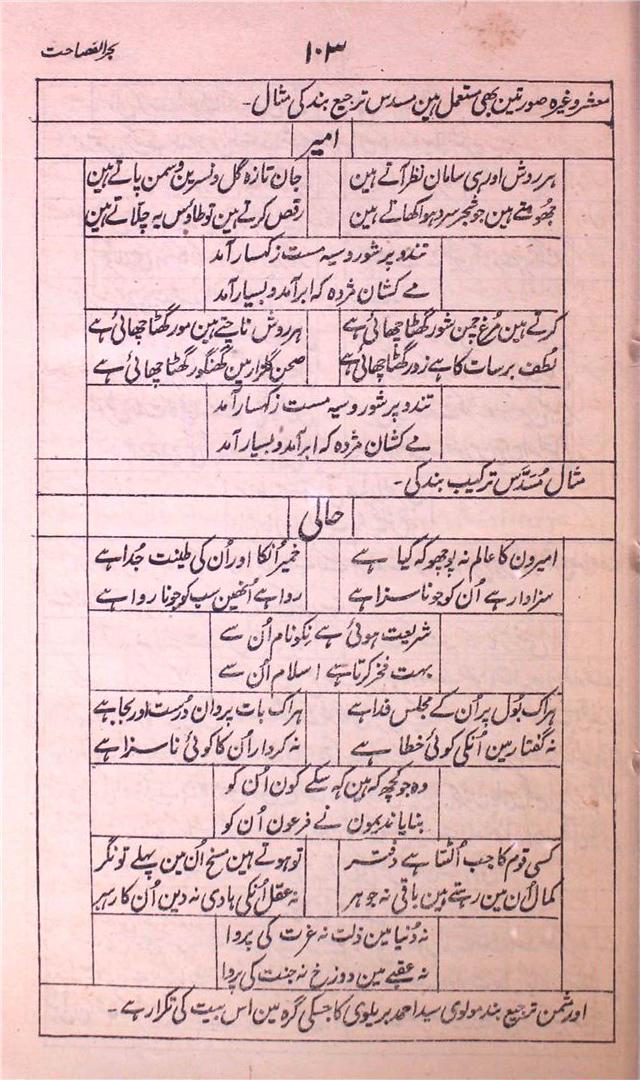 بحر الفصاحت
۱۰۳
معشر وغیرہ صورتین بھی مستعمل ہین مسدس ترجیع بند کی مثال۔
امیر
ہر روش اور ہی سامان نظر آتے ہین جان تازہ گل و نسرین و سمن پاتے ہین
جھومتے ہین جو شجر سرد ہوا کھاتے ہین رقص کرتے ہین تو طاؤس یہ چلّاتے ہین
تند و پر شور و سیہ مست ز کہسار آمد
مے کشان مژدہ کہ ابر آمد و بسیار آمد
کرتے ہین مرغ چمن شور گھٹا چھائی ہے ہر روش ناچتے ہین مور گھٹا چھائی ہے
لُطف برسات کا ہے زور گھٹا چھائی ہے صحن گلزار مین گھنگور گھٹا چھائی ہے
تند و پر شور و سیہ مست ز کہسار آمد
مے کشان مژدہ کہ ابر آمد و بسیار آمد
مثال مُسَدَّس ترکیب بند کی۔
حالی
امیرون کا عالم نہ پوچھو کہ کیا ہے خمیر اُنکا اور اُن کی طینت جُدا ہے
سزاوار ہے اُن کو جو نا سزا ہے روا ہے اُنھین سب کو جو نا روا ہے
شریعت ہوئی ہے نِکو نام اُن سے
بہت فخر کرتا ہے اسلام اُن سے
ہر اک بول پر اُن کے مجلس فدا ہے ہر اک بات پر وان دُرست اور بجا ہے
نہ گفتار مین اُنکی کوئی خطا ہے نہ کردار اُن کا کوئی نا سزا ہے
وہ جو کچھ کہ ہین کہہ سکے کون اُن کو
بنایا ندیمون نے فرعون اُن کو
کسی قوم کا جب اُلٹتا ہے دفتر تو ہوتے ہین مسخ اُن مین پہلے تونگر
کمال اُن مین رہتے ہین باقی نہ جوہر نہ عقل اُنکی ہادی نہ دین اُن کا رہبر
نہ دُنیا مین ذلت نہ عزت کی پروا
نہ عقبے مین دوزخ نہ جنت کی پروا
اور مثمن ترجیع بند مولوی سید احمد بریلوی کا جسکی گرہ مین اس بیت کی تکرار ہے۔